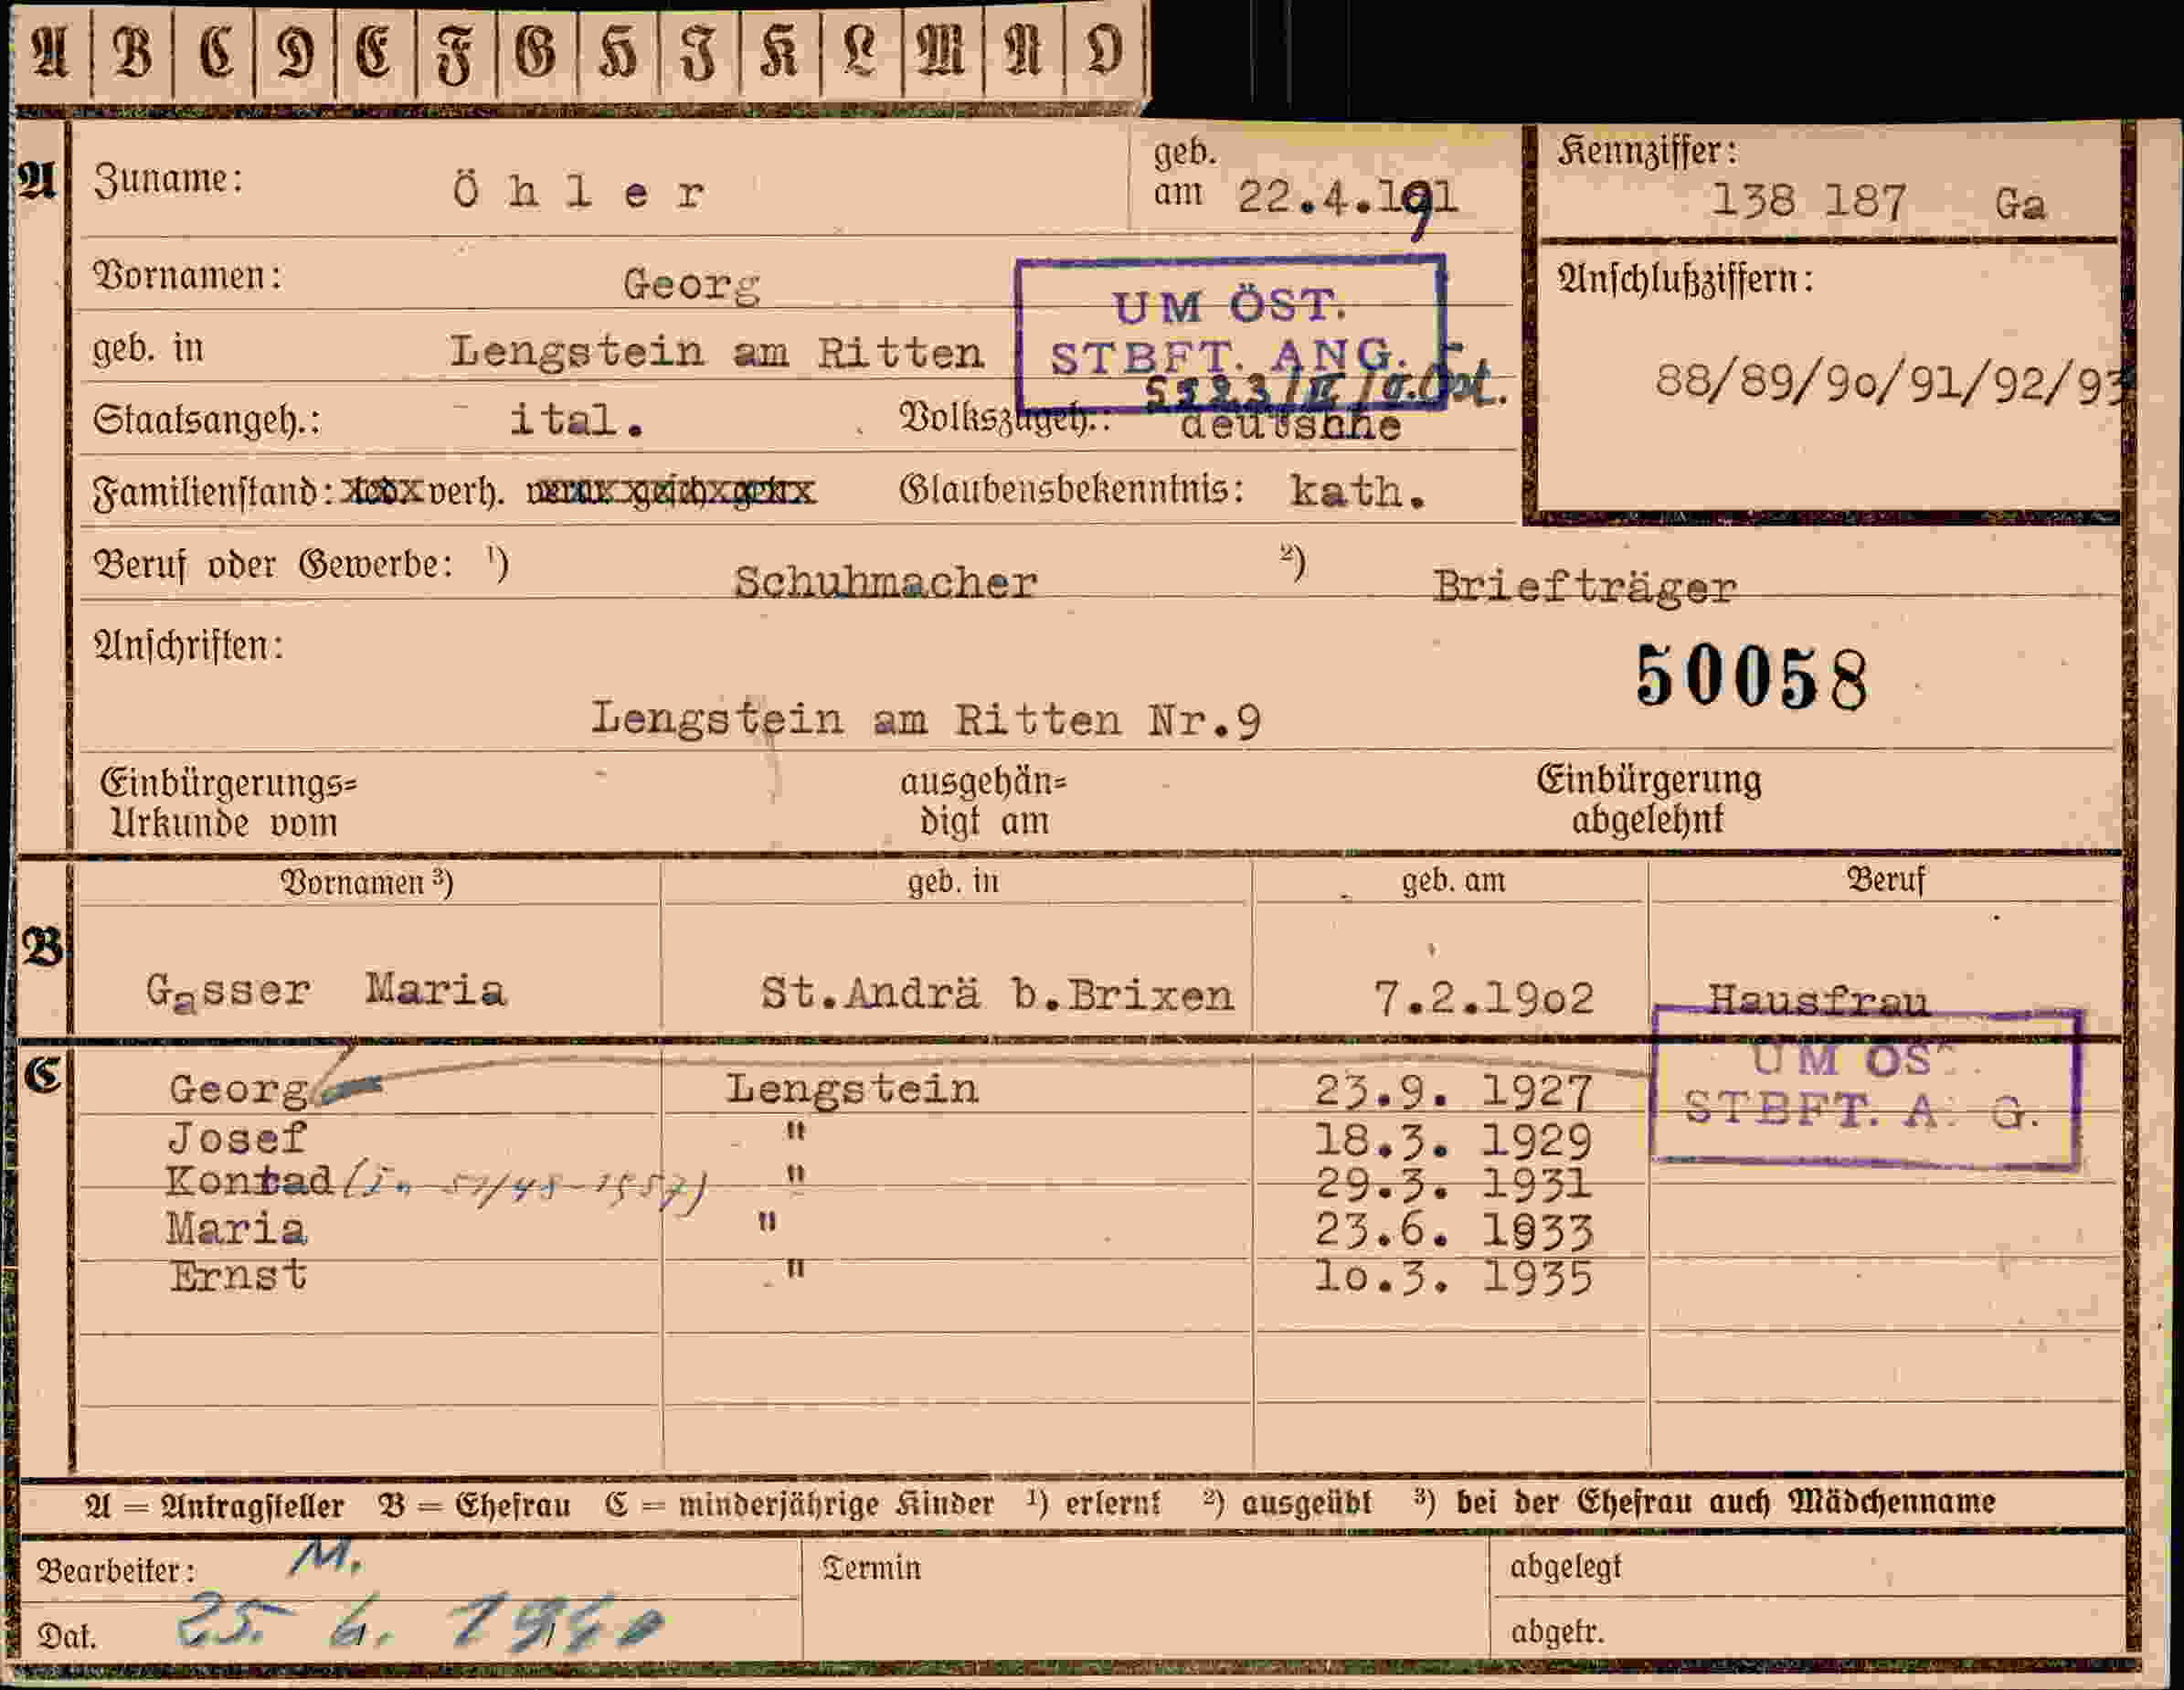 A B C D E F G H J K L M N O
A Zuname: Öhler geb. am 22.4.191 Kennziffer: 138 187 Ga
Vornamen: Georg
UM ÖST.
STBFT. ANG.
Anschlußziffern:
geb. in Lengstein am Ritten
88/89/90/91/92/93
Staatsangeh.: ital. Volkszugeh.: deutsche
Familienstand: verh. Glaubensbekenntnis: kath.
Beruf oder Gewerbe: ¹) Schuhmacher ²) Briefträger
Anschriften:
50058
Lengstein am Ritten Nr.9
Einbürgerungs= ausgehän= Einbürgerung
Urkunde vom digt am abgelehnt
Vornamen ³) geb. in geb. am Beruf
B Gasser Maria St.Andrä b.Brixen 7.2.1902 Hausfrau
C Georg Lengstein 23.9. 1927
UM ÖS
STBFT. A G.
Josef " 18.3. 1929
Konrad " 29.3. 1931
Maria " 23.6. 1933
Ernst " 10.3. 1935
A = Antragsteller B = Ehefrau C = minderjährige Kinder ¹) erlernt ²) ausgeübt ³) bei der Ehefrau auch Mädchenname
Bearbeiter: M. Termin abgelegt
Dat. 25. 6. 1940 abgetr.